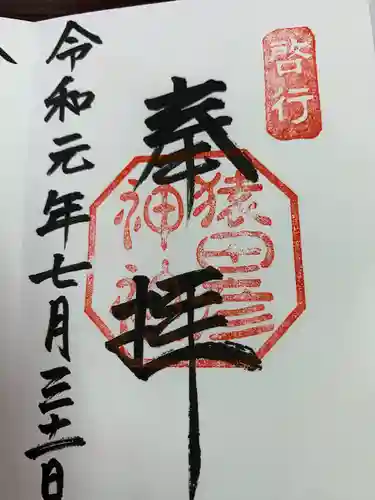 啓行
奉拝
猿田彦
神社
令和元年七月三十一日